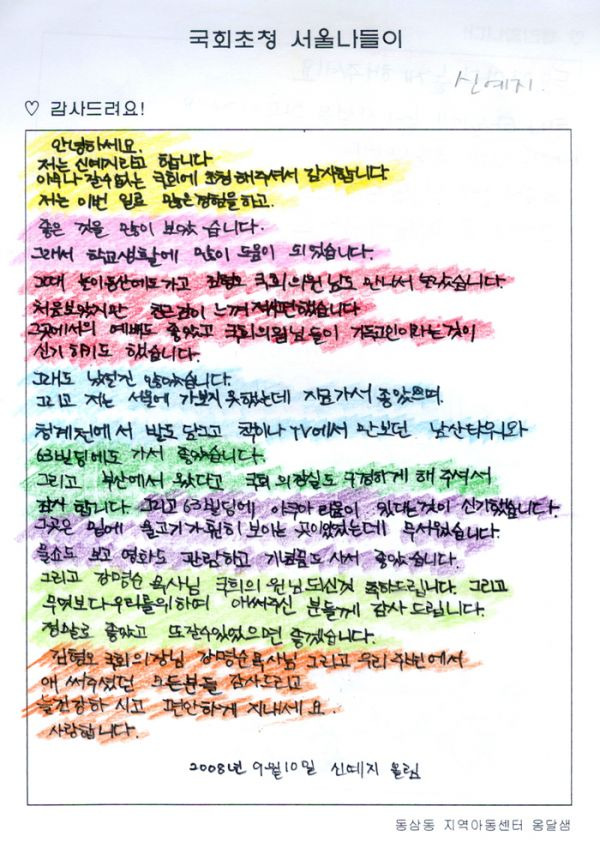 국회초청 서울나들이
신예지
♡ 감사드려요!
안녕하세요.
저는 신예지라고 합니다
아무나 갈수없는 국회에 초청해주셔서 감사합니다
저는 이번 일로 많은경험을하고.
좋은 것을 많이 보았습니다.
그래서 학교생활에 많이 도움이 되었습니다.
그때 놀이동산에도가고 김형오 국회의원님도 만나서 놀았습니다.
처음보았지만 친근감이 느껴져서편했습니다
그곳에서의 예배도 좋았고 국회의원님들이 기독교인이라는것이
신기하기도 했습니다.
그래도 낯설진 않았습니다.
그리고 저는 서울에 가보지 못했는데 지금가서 좋았으며.
청계천에서 발도 담그고 책이나 TV에서 만보던 남산타워와
63빌딩에도 가서 좋았습니다.
그리고 부산에서 왔다고 국회의장실도 구경하게 해주셔서
감사합니다 그리고 63빌딩에 아쿠아리움이 있다는것이 신기했습니다.
그곳은 밑에 물고기가훤히 보이는 곳이있었는데 무서웠습니다.
물쇼도 보고 영화도 관람하고 기념품도 사서 좋았습니다.
그리고 강명순 목사님 국회의원님되신것 축하드립니다. 그리고
무엇보다우리들을위하여 애써주신 분들께 감사드립니다.
정말로 좋았고 또갈수있었으면 좋겠습니다.
김형오 국회의장님 강명순목사님 그리고 우리 주변에서
애써주셨던 모든분들 감사드리고
늘건강하시고 편안하게 지내세요.
사랑합니다.
2008년 9월10일 신예지 올림
동삼동 지역아동센터 옹달샘